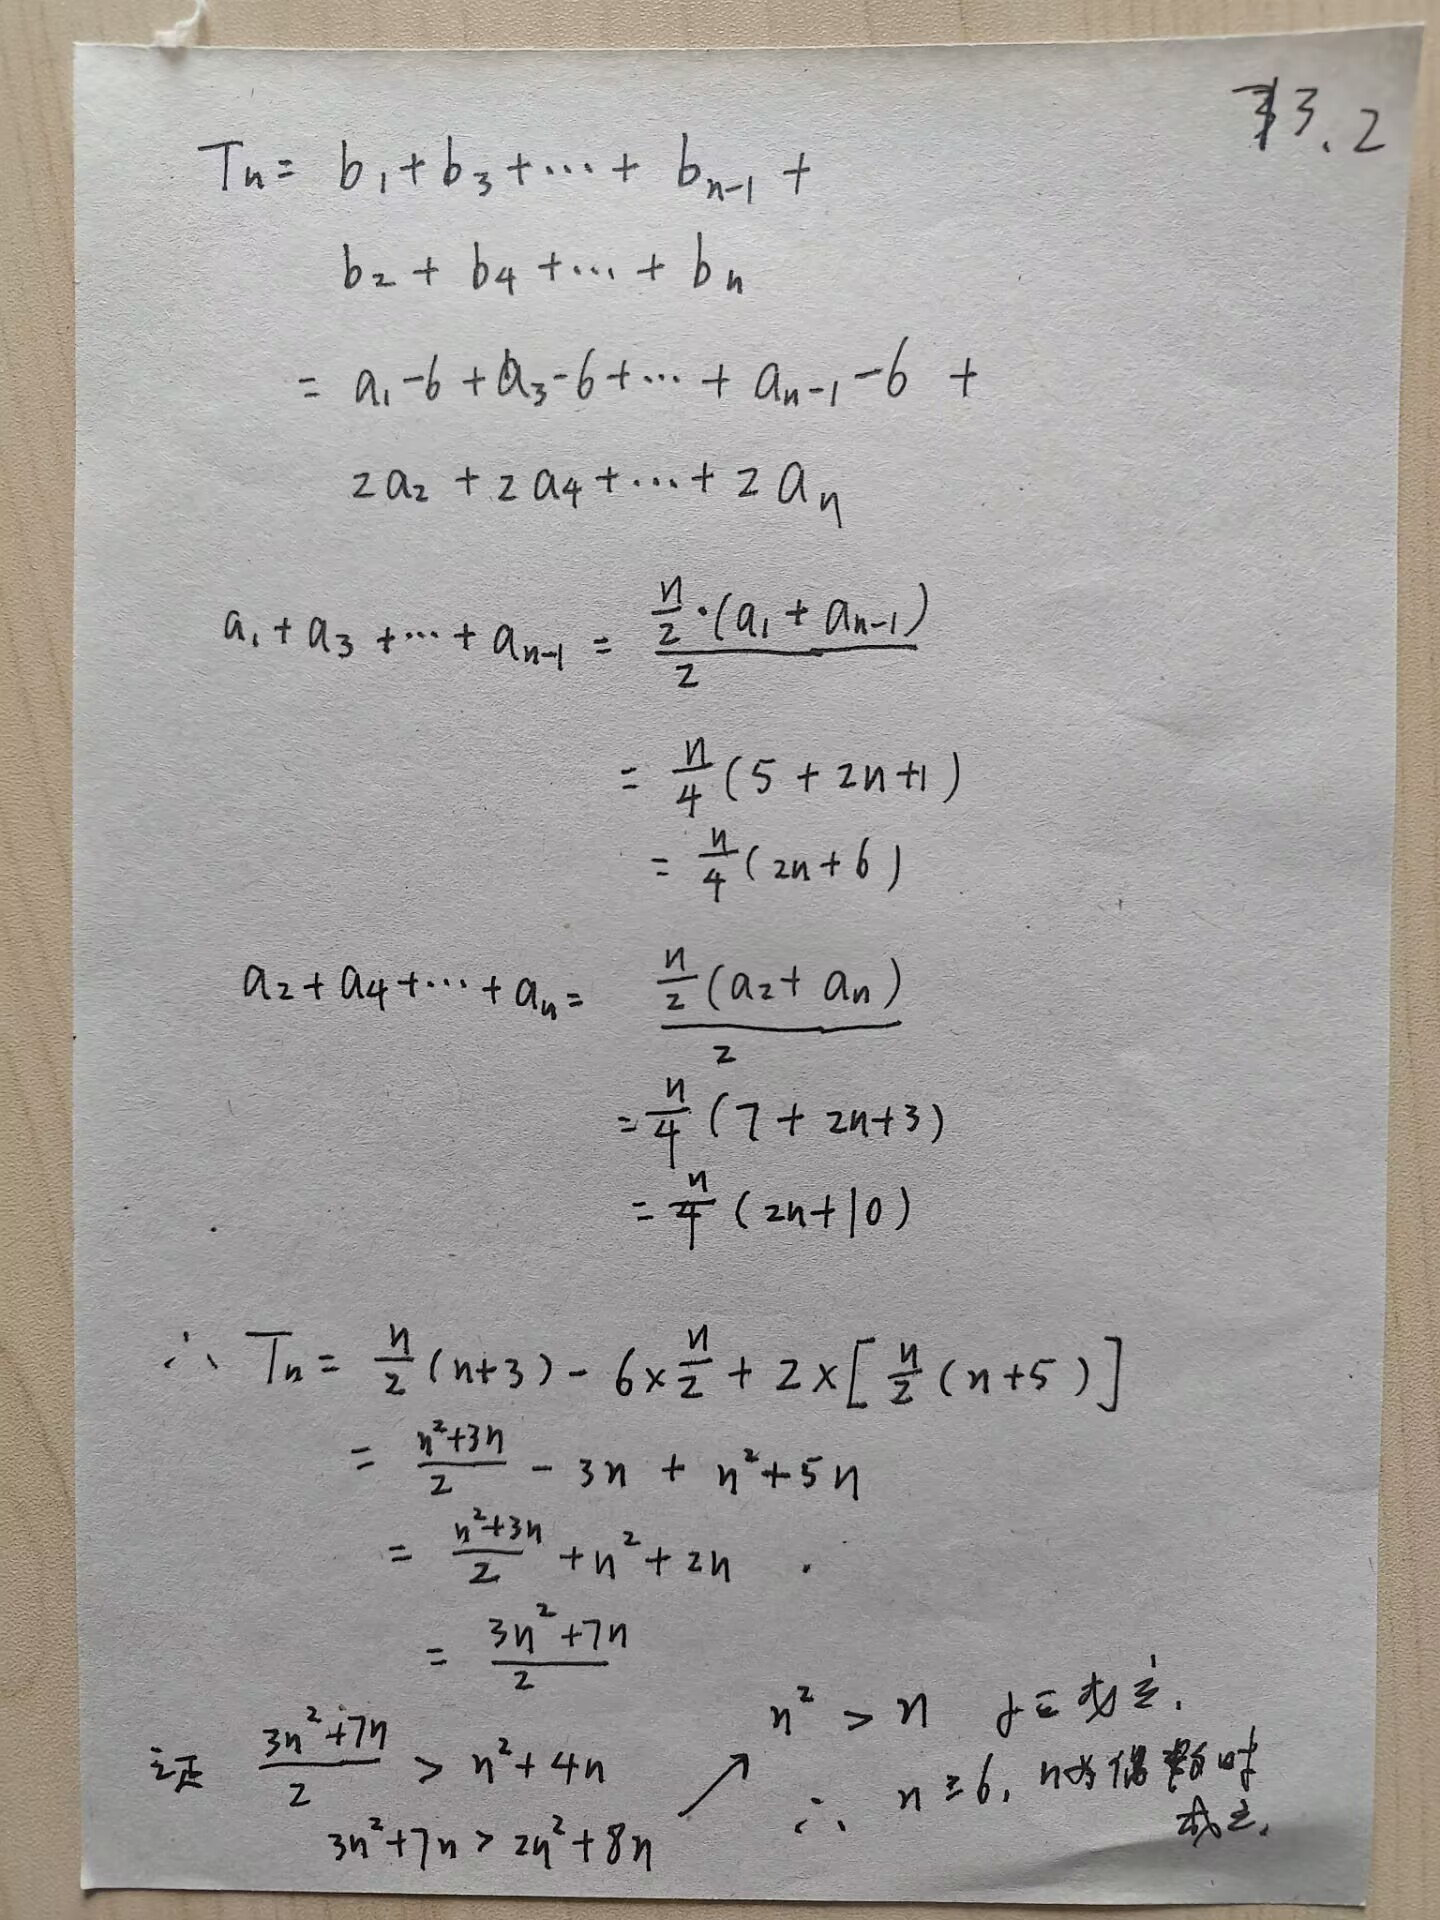 33.2
Tn = b₁ + b₃ + ⋯ + bₙ₋₁ +
b₂ + b₄ + ⋯ + bₙ
= a₁ - 6 + a₃ - 6 + ⋯ + aₙ₋₁ - 6 +
2a₂ + 2a₄ + ⋯ + 2aₙ
a₁ + a₃ + ⋯ + aₙ₋₁ = (n/2 · (a₁ + aₙ₋₁))/2
= n/4 (5 + 2n+1)
= n/4 (2n + 6)
a₂ + a₄ + ⋯ + aₙ = (n/2 (a₂ + aₙ))/2
= n/4 (7 + 2n+3)
= n/4 (2n+10)
∴ Tn = n/2 (n+3) - 6 × n/2 + 2 × [n/2 (n+5)]
= (n²+3n)/2 - 3n + n² + 5n
= (n²+3n)/2 + n² + 2n
= (3n²+7n)/2
证 (3n²+7n)/2 > n² + 4n
3n²+7n > 2n²+8n
n² > n 恒成立.
∴ n ≥ 6, n为偶数时
成立.